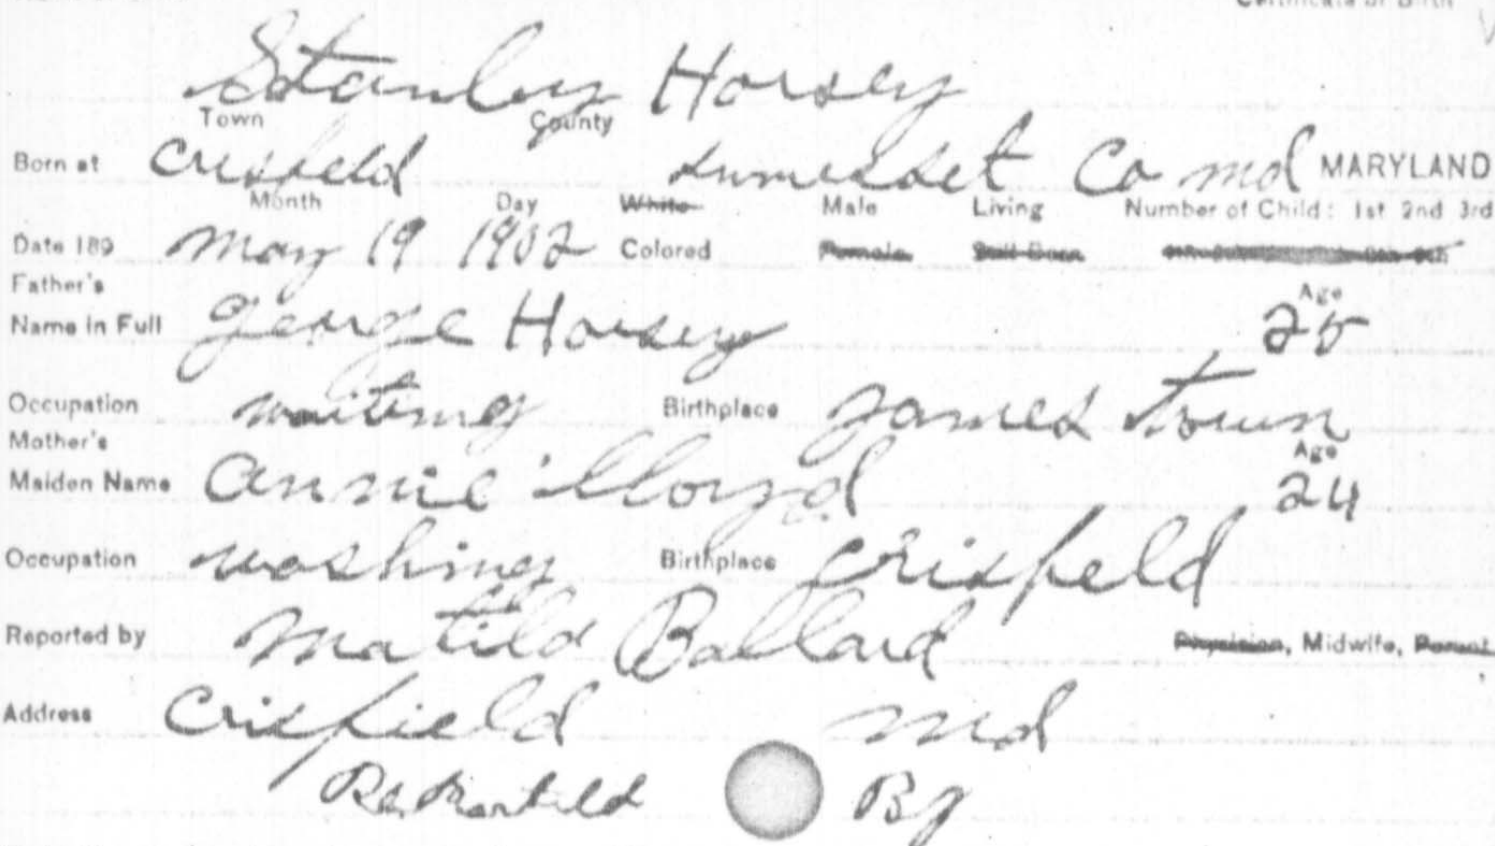 Certificate of Birth
Stanley Horsey
Town County
Born at Crisfeld Sumersset Co md MARYLAND
Month Day White Male Living Number of Child: 1st 2nd 3rd
Date 189 may 19 1902 Colored Female Still Born
Father's Age
Name in Full George Horsey 25
Occupation waiting Birthplace James town
Mother's Age
Maiden Name annie lloyd 24
Occupation washing Birthplace Crisfeld
Reported by Matilda Ballard Physician, Midwife, Parent
Address Crisfield md